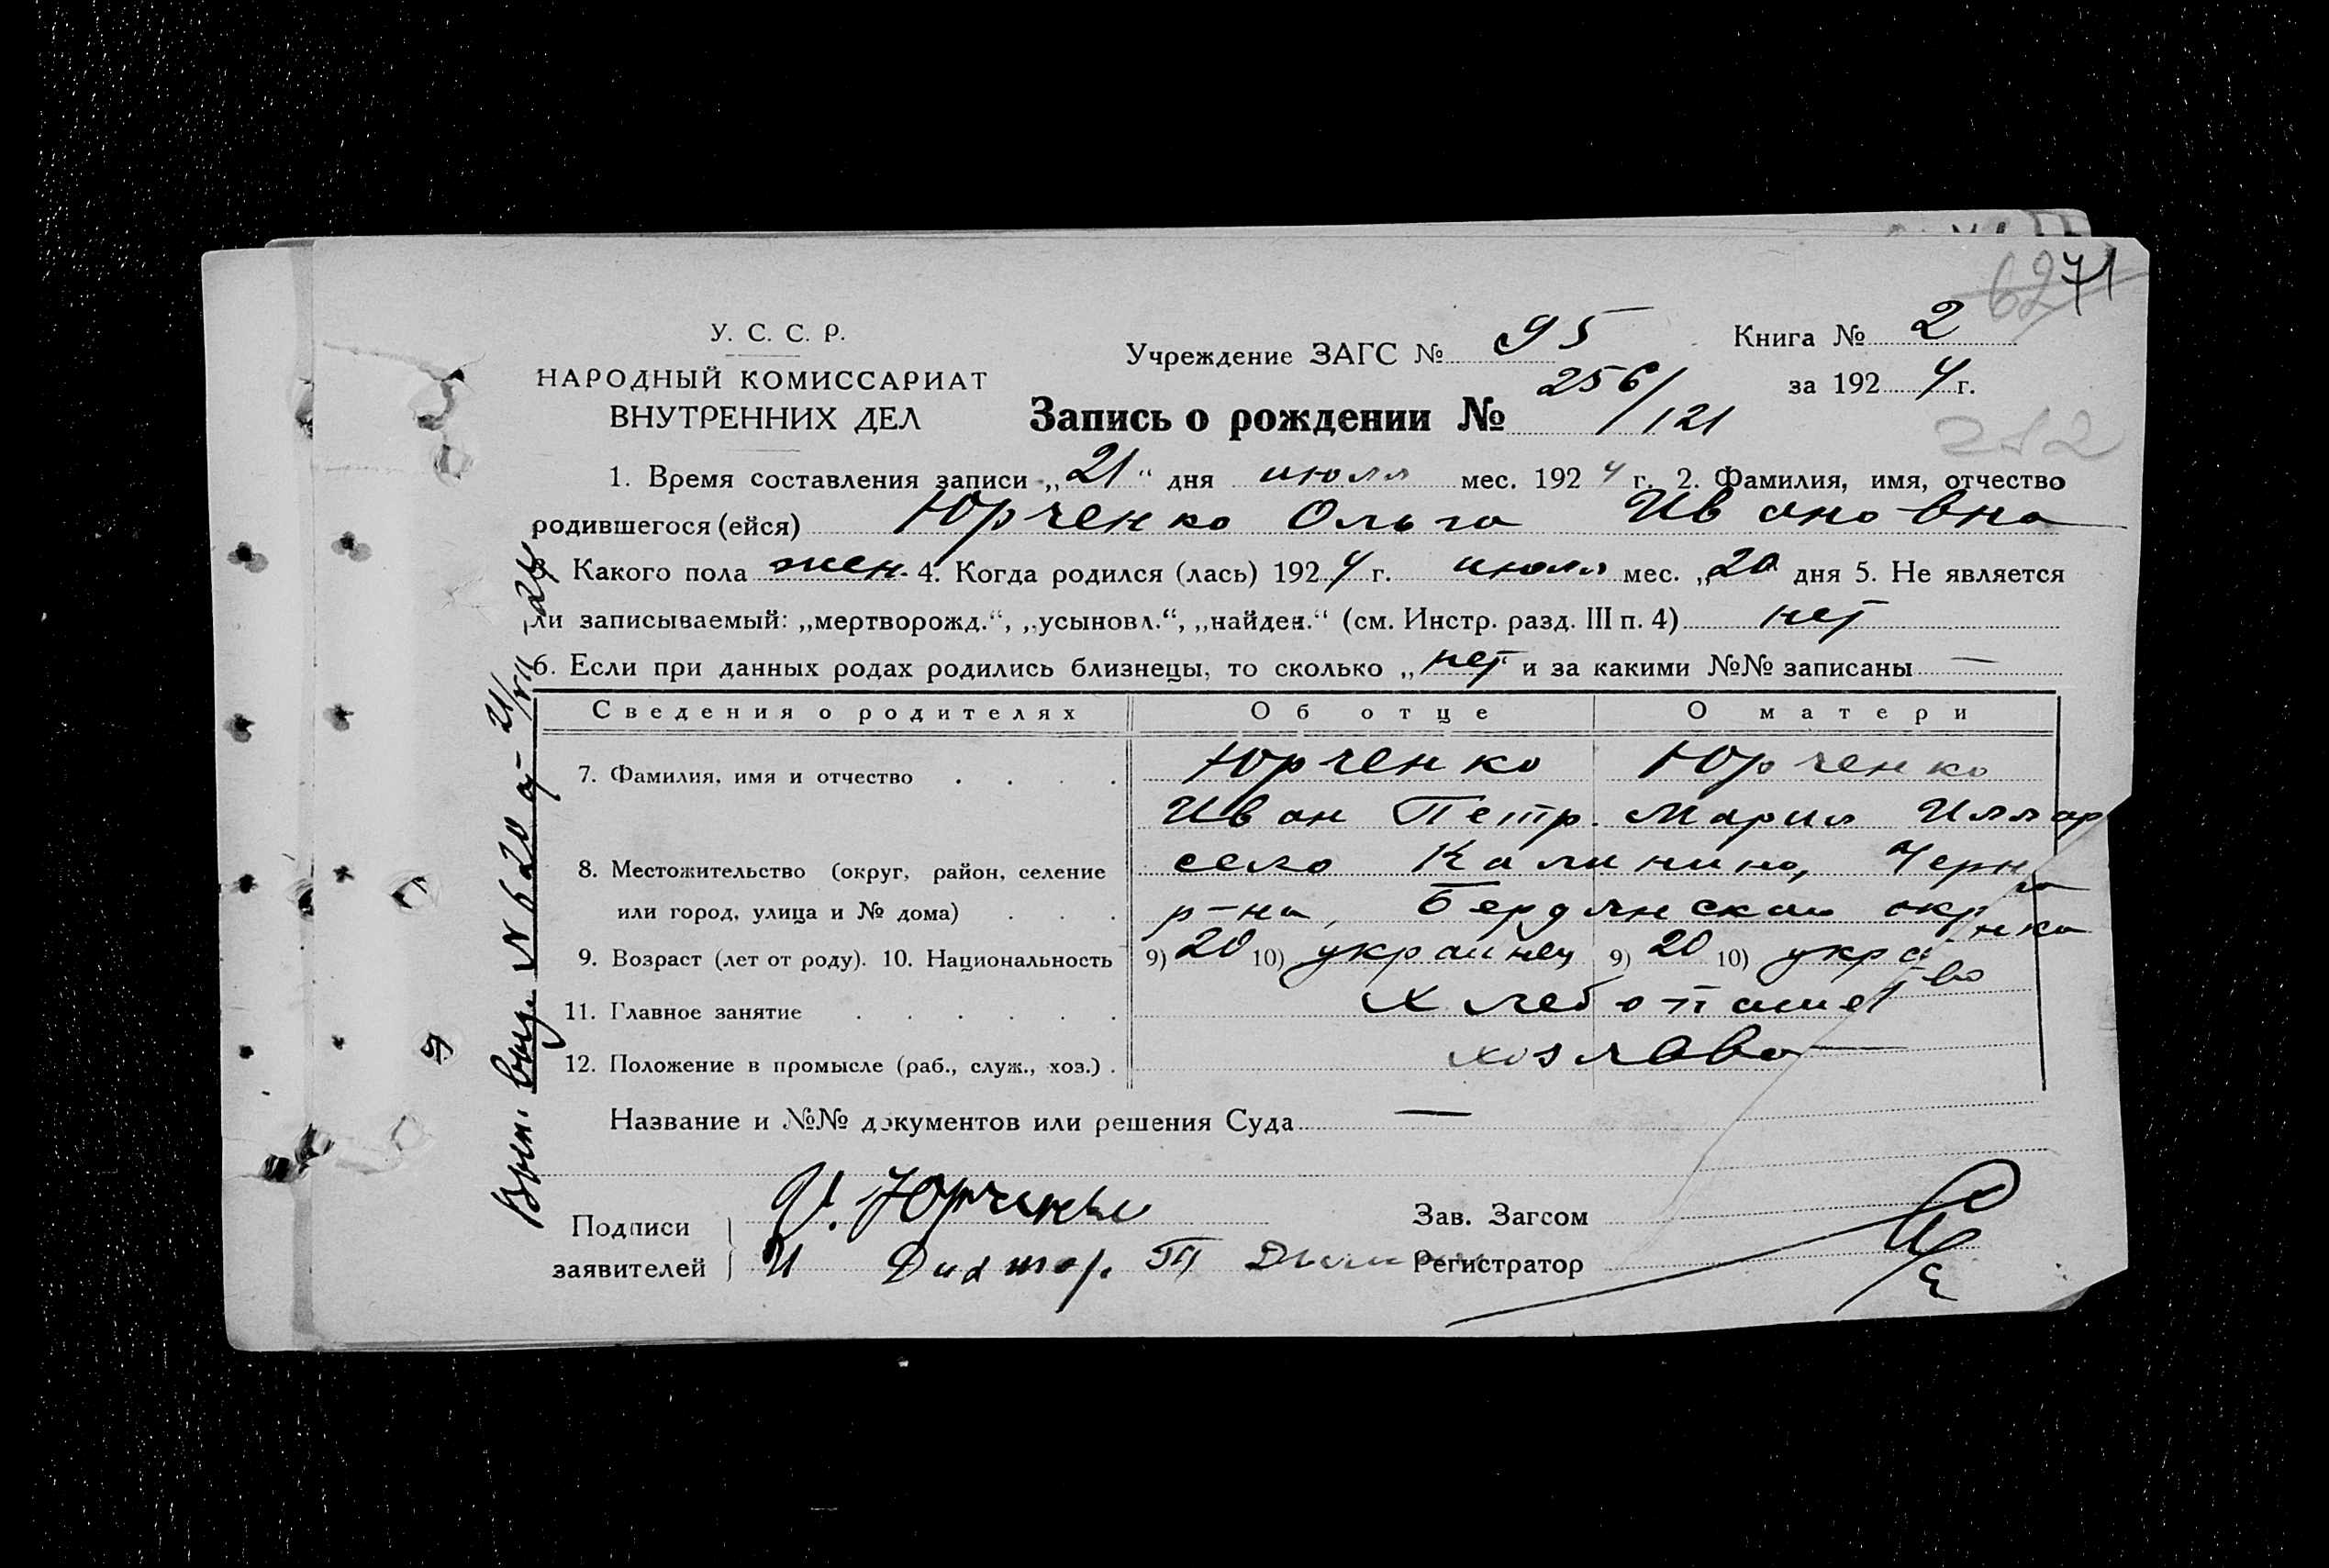 6271
У. С. С. Р.
НАРОДНЫЙ КОМИССАРИАТ
ВНУТРЕННИХ ДЕЛ
Учреждение ЗАГС № 95
Книга № 2
за 1924 г.
Запись о рождении № 256/121
252
1. Время составления записи „21“ дня июля мес. 1924 г. 2. Фамилия, имя, отчество
родившегося (ейся) Юрченко Ольга Ивановна
3. Какого пола жен. 4. Когда родился (лась) 1924 г. июля мес. „20 дня 5. Не является
ли записываемый: „мертворожд.“, „усыновл.“, „найден.“ (см. Инстр. разд. III п. 4) нет
6. Если при данных родах родились близнецы, то сколько „нет и за какими №№ записаны —
Сведения о родителях Об отце О матери
7. Фамилия, имя и отчество . . . . Юрченко Юрченко
Иван Петр. Мария Илляр
8. Местожительство (округ, район, селение село Калинино, Черниг
или город, улица и № дома) . . . р-на, Бердянской окр
9. Возраст (лет от роду). 10. Национальность 9) 20 10) украинец 9) 20 10) украинка
11. Главное занятие . . . . . . Хлебопашество
12. Положение в промысле (раб., служ., хоз.) . хозяева
Название и №№ документов или решения Суда —
Подписи
заявителей
И. Юрченко
И
Зав. Загсом
Регистратор
Вып. выд. № 620 от 21/VII-24